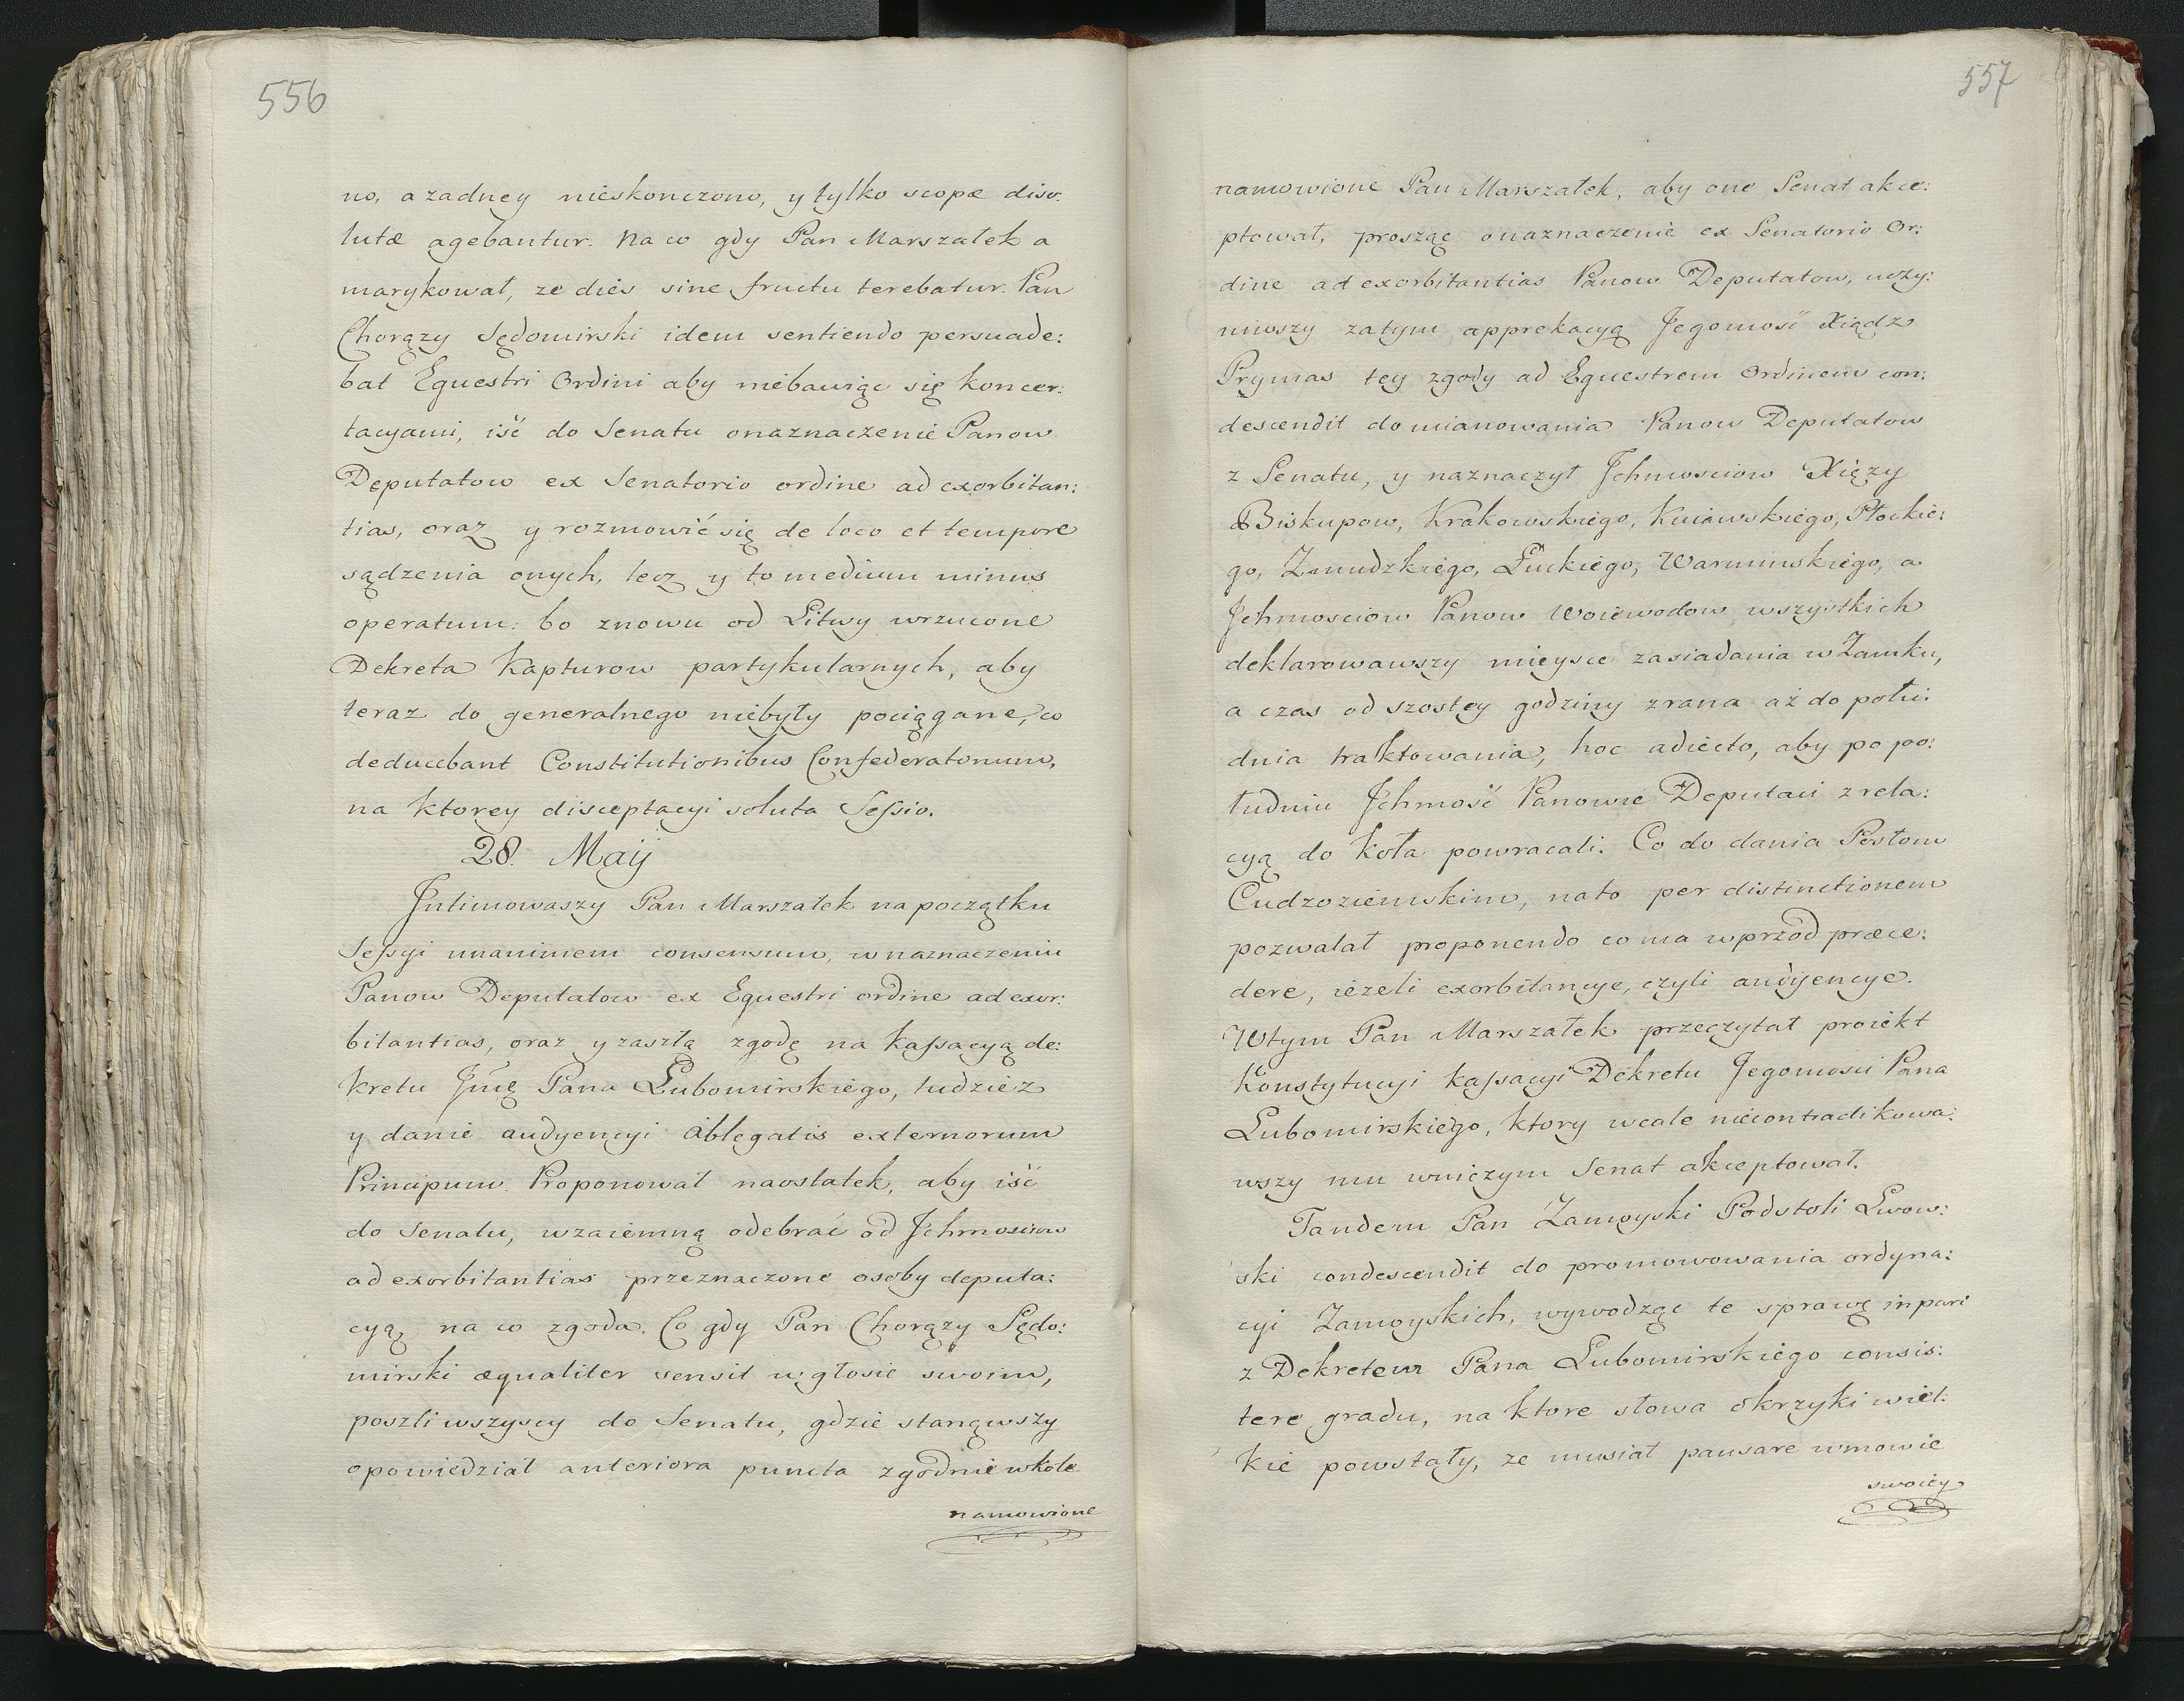 556
no, a zadney nieskonczono, y tylko scopæ diso:
lutæ agebantur. Na co gdy Pan Marszałek a
marykował, ze dies sine fructu terebatur. Pan
Chorązy Sędomirski idem sentiendo persuade:
bat Equestri Ordini aby niebawiąc się koncer:
tacyami, iść do Senatu onaznaczenie Panow
Deputatow ex Senatorio ordine ad exorbitan:
tias, oraz y rozmowić się de loco et tempore
sądzenia onych, lecz y to medium minus
operatum: bo znowu od Litwy wrzucone
Dekreta Kapturow partykularnych, aby
teraz do generalnego niebyły pociągane, co
deducebant Constitutionibus Confederatonum,
na ktorey disceptacyi soluta Sessio.
28. Maij
Intimowaszy Pan Marszałek na początku
Sessyi unanimem consensum, w naznaczeniu
Panow Deputatow ex Equestri ordine ad exor:
bitantias, oraz y zaszłą zgodę na kassacyą de:
kretu Jmę Pana Lubomirskiego, tudziez
y danie audyencyi Ablegatis externorum
Principum. Proponował naostatek, aby iść
do Senatu, wzaiemną odebrać od Jchmosciow
ad exorbitantias przeznaczone osoby deputa:
cyą, na co zgoda. Co gdy Pan Chorązy Sędo:
mirski æqualiter sensit w głosie swoim,
poszli wszyscy do Senatu, gdzie stanąwszy
opowiedział anteriora puncta zgodnie wkole
namowione
557
namowione Pan Marszałek, aby one Senat akce:
ptował, prosząc onaznaczenie ex Senatorio Or:
dine ad exorbitantias Panow Deputatow, uczy:
niwszy zatym apprekacyą Jegomość Xiądz
Prymas tey zgody ad Equestrem Ordinem con:
descendit do mianowania Panow Deputatow
z Senatu, y naznaczył Jchmosciow Xięzy
Biskupow, Krakowskiego, Kuiawskiego, Płockie:
go, Zmudzkiego, Łuckiego, Warminskiego, a
Jchmosciow Panow Woiewodow wszystkich
deklarowawszy mieysce zasiadania w Zamku,
a czas od szostey godziny zrana aż do połu:
dnia traktowania, hoc adiecto, aby po po:
łudniu Jchmość Panowie Deputaci z rela:
cyą do Koła powracali. Co do dania Posłom
Cudzoziemskim, nato per distinctionem
pozwalał proponendo co ma wprzod præce:
dere, iezeli exorbitancye, czyli audyencye.
Wtym Pan Marszałek przeczytał proiekt
Konstytucyi kassacyi Dekretu Jegomosci Pana
Lubomirskiego, ktory wcale niecontradikowa:
wszy mu wniczym Senat akceptował.
Tandem Pan Zamoyski Podstoli Lwow:
ski condescendit do promowowania ordyna:
cyi Zamoyskich, wywodząc te sprawę in pari
z Dekretem Pana Lubomirskiego consis:
tere gradu, na ktore słowa okrzyki wiel:
kie powstały, ze musiał pausare wmowie
swoiey